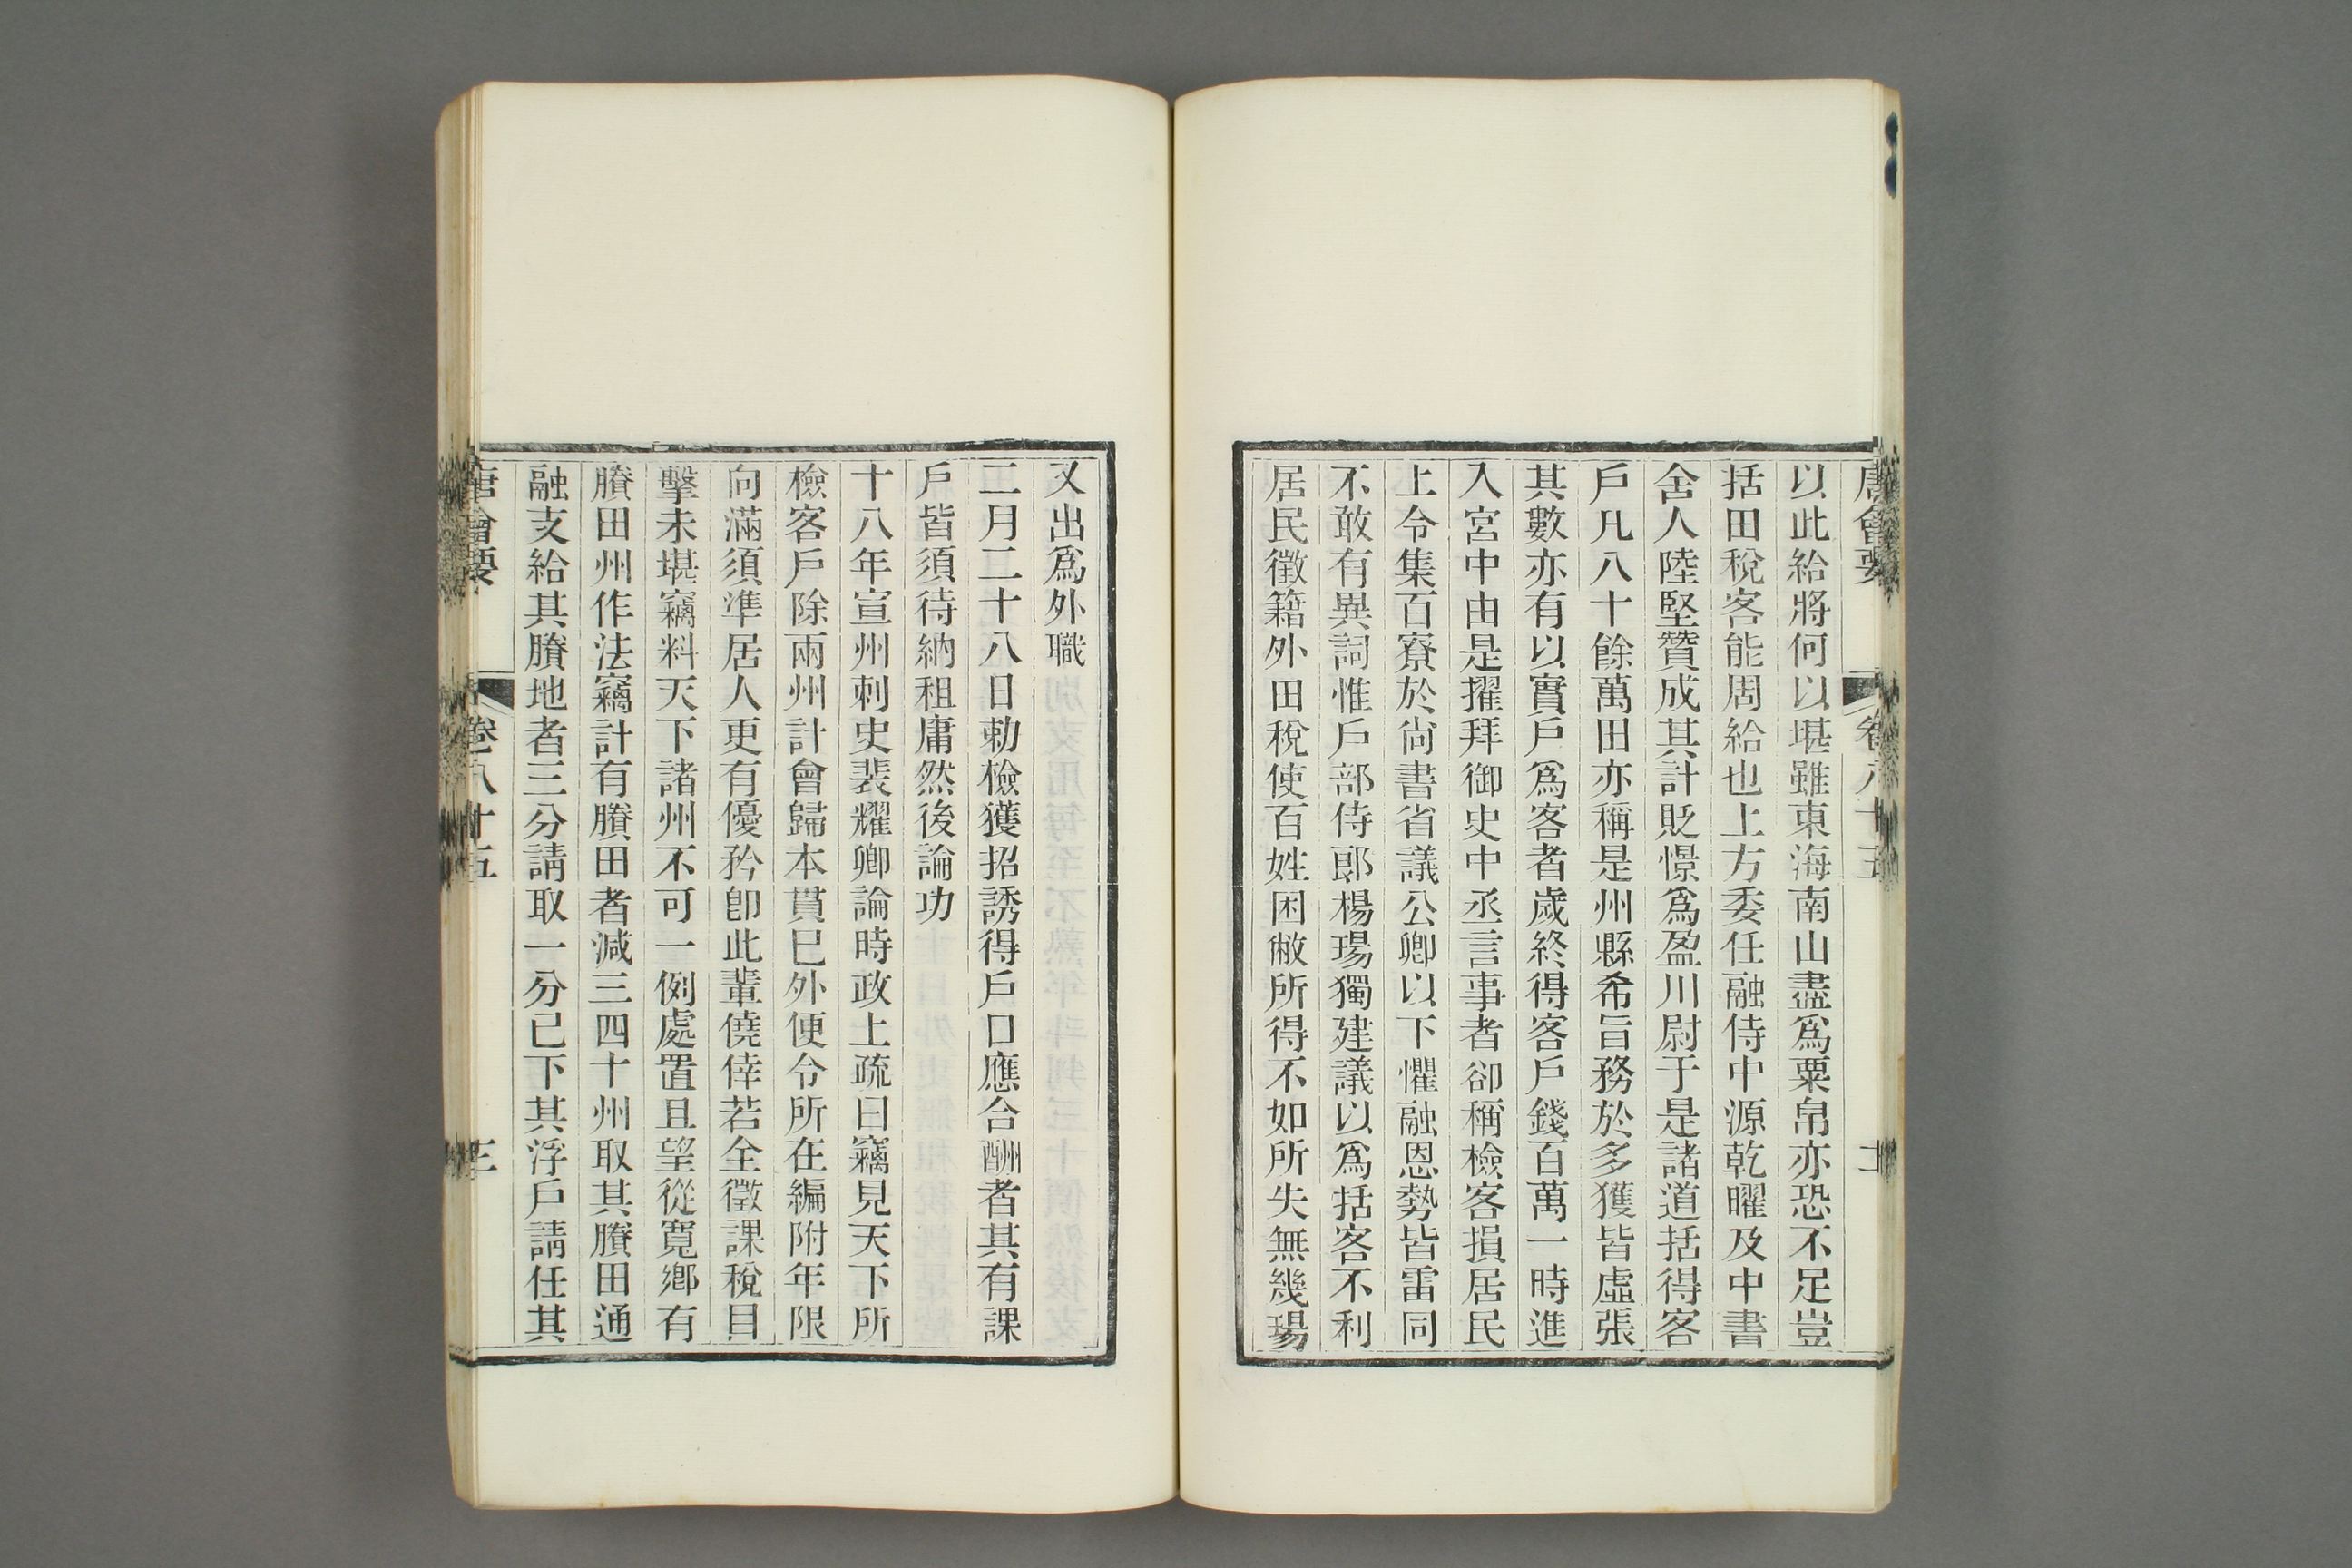 唐會要 卷八十五
以此給將何以堪雖東海南山盡爲粟帛亦恐不足豈
括田稅客能周給也上方委任融侍中源乾曜及中書
舍人陸堅贊成其計貶憬爲盈川尉于是諸道括得客
戶凡八十餘萬田亦稱是州縣希旨務於多獲皆虛張
其數亦有以實戶爲客者歲終得客戶錢百萬一時進
入宮中由是擢拜御史中丞言事者卻稱檢客損居民
上令集百寮於尚書省議公卿以下懼融恩勢皆雷同
不敢有異詞惟戶部侍郎楊瑒獨建議以爲括客不利
居民徵籍外田稅使百姓困敝所得不如所失無幾瑒
又出爲外職
二月二十八日勅檢獲招誘得戶口應合酬者其有課
戶皆須待納租庸然後論功
十八年宣州刺史裴耀卿論時政上疏曰竊見天下所
檢客戶除兩州計會歸本貫已外便令所在編附年限
向滿須準居人更有優矜卽此輩僥倖若全徵課稅目
擊未堪竊料天下諸州不可一例處置且望從寬鄉有
賸田州作法竊計有賸田者減三四十州取其賸田通
融支給其賸地者三分請取一分已下其浮戶請任其
唐會要 卷八十五 三